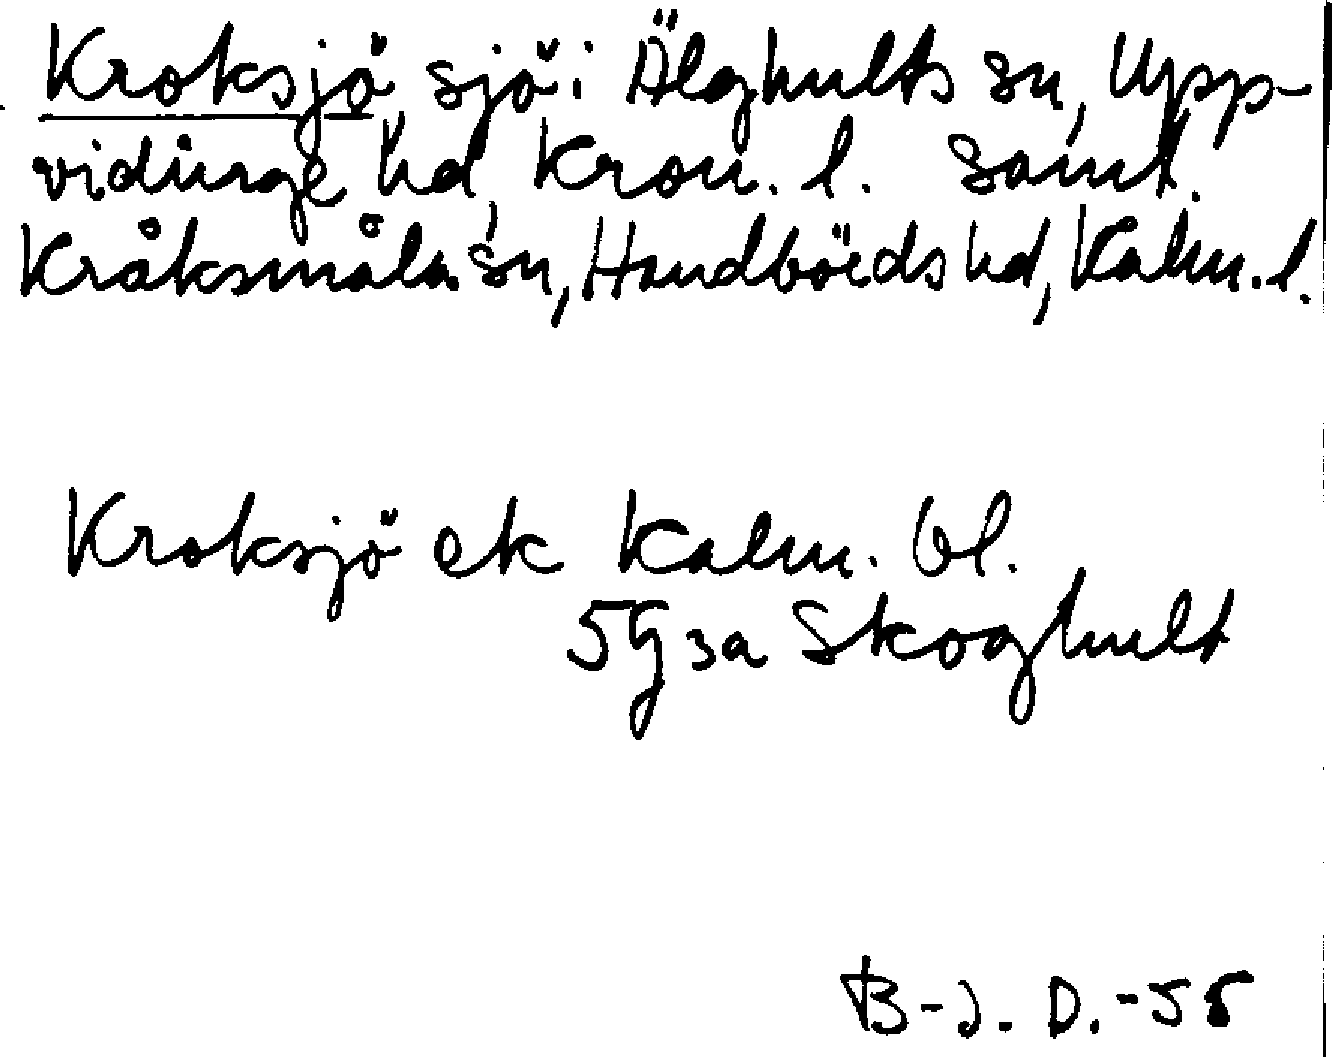 Kroksjö sjö i Älghults sn, Upp-
vidinge hd, Kron. l. samt.
Kråksmåla sn, Handbörds hd, Kalm. l.
Kroksjö ek Kalm. bl.
5g3a Skoghult
B-J. D.-55